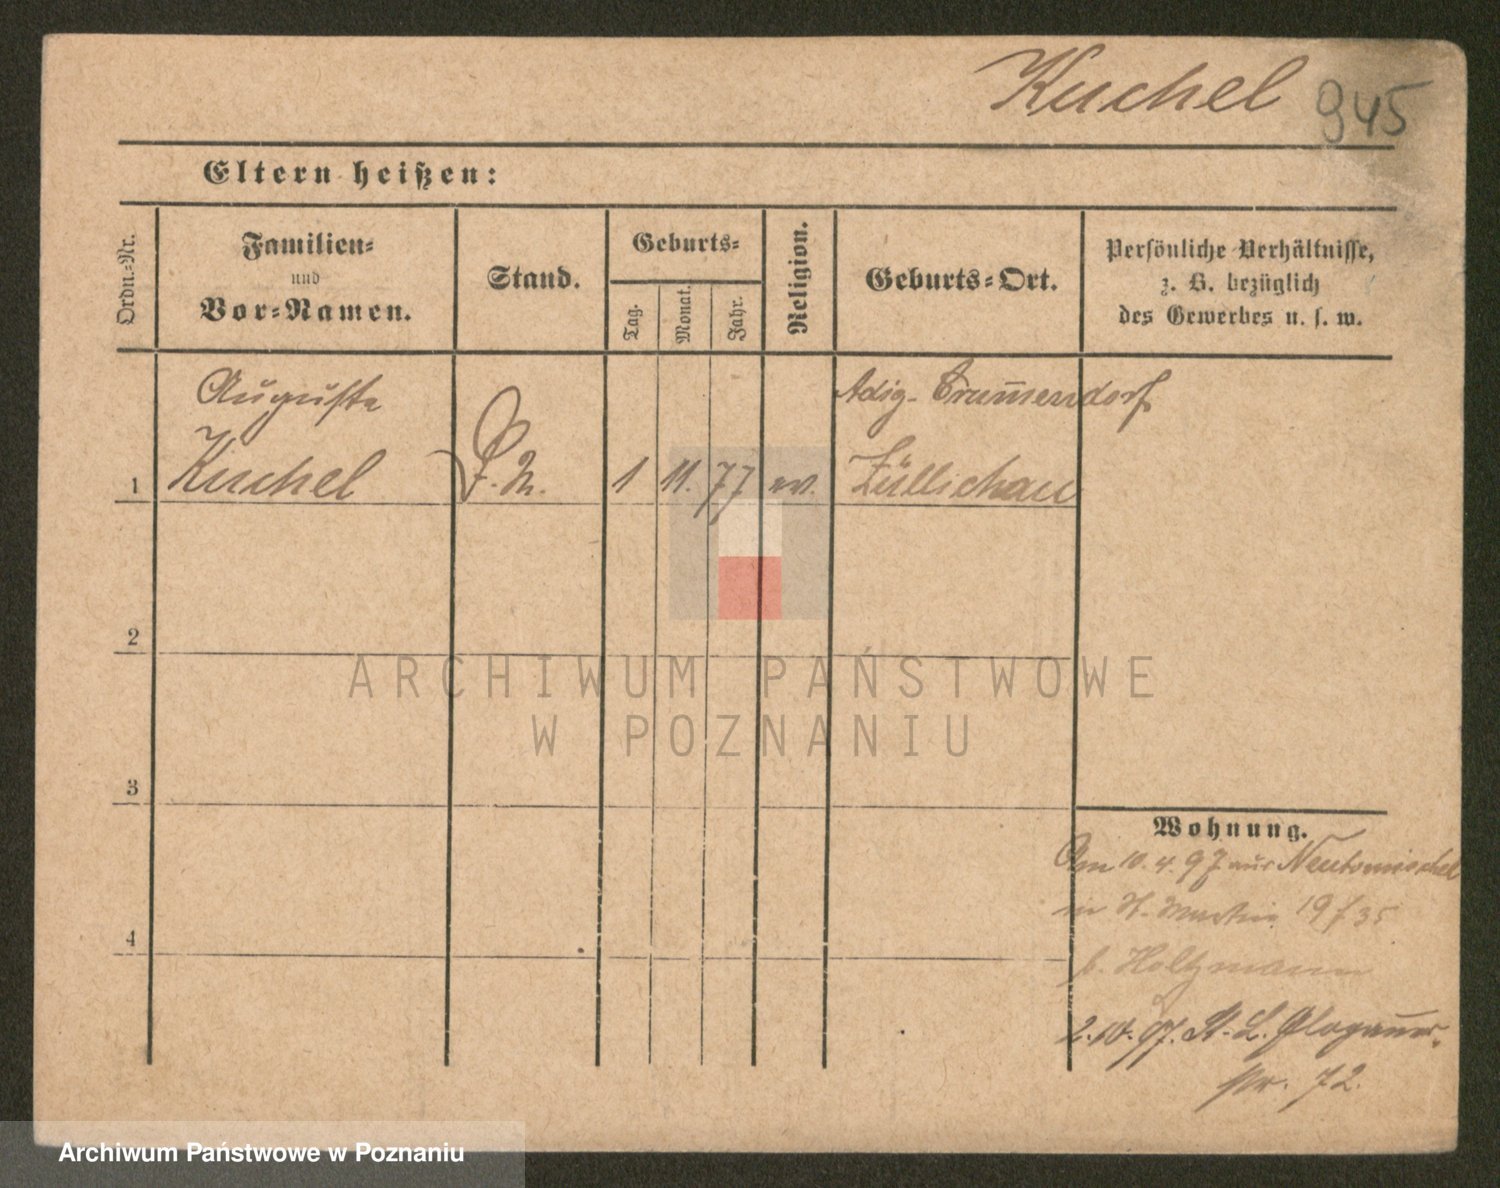 Kuchel 945
Eltern heißen:
Ordn.-Nr.
Familien-
und
Vor-Namen.
Stand.
Geburts-
Tag.
Monat.
Jahr.
Religion.
Geburts-Ort.
Persönliche Verhältnisse,
z. B. bezüglich
des Gewerbes u. s. w.
Auguste
Kuchel
1
1 11. 77 ev.
Züllichau
2
3
4
Wohnung.
Am 10.4.97 aus Neutomischel
in St. Martin 19
b. Holtzmann
2.10.97. St. L. Glogauer-
str. 72.
ARCHIWUM PAŃSTWOWE
W POZNANIU
Archiwum Państwowe w Poznaniu